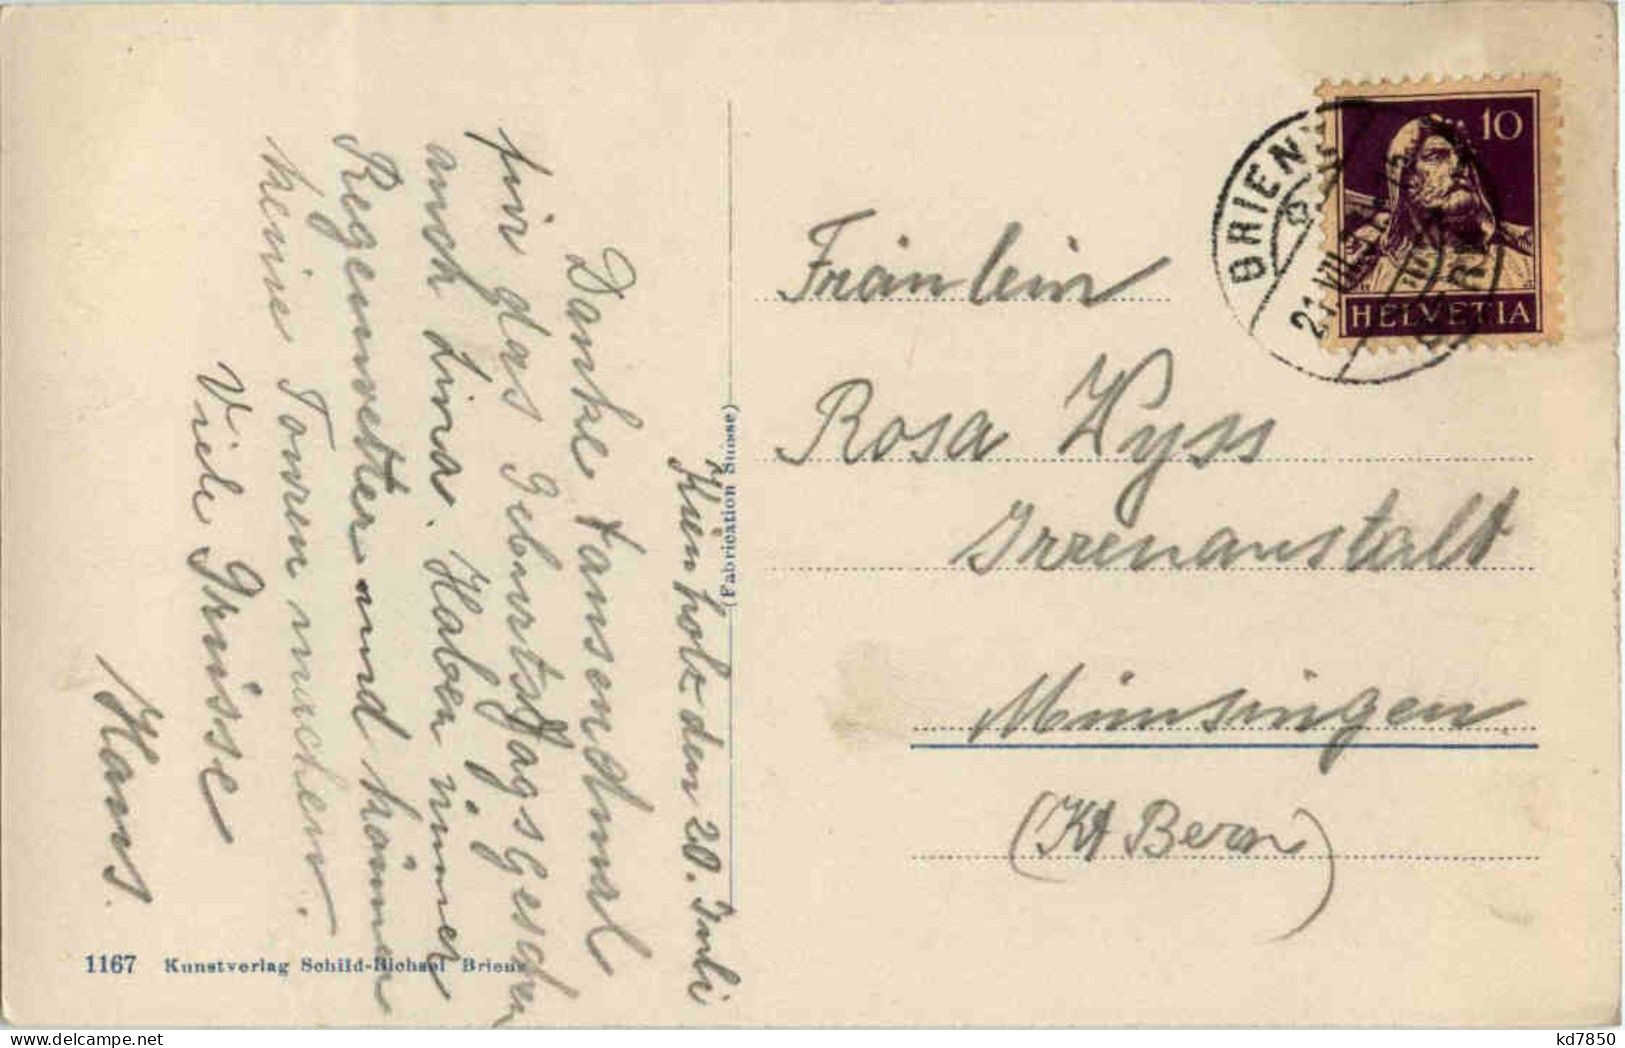 Kienholz den 20. Juli
Danke tausendmal
für das Geburtstagsgeschen
auch Lina. Haben immer
Regenwetter und können
keine Touren machen.
Viele Grüsse
Hans.
1167 Kunstverlag Schild-Bichsel Brienz
(Fabrication Suisse)
Fräulein
Rosa Wyss
Irrenanstalt
Münsingen
(Kt Bern)
BRIENZ
21. VII.
10
HELVETIA
kd7850